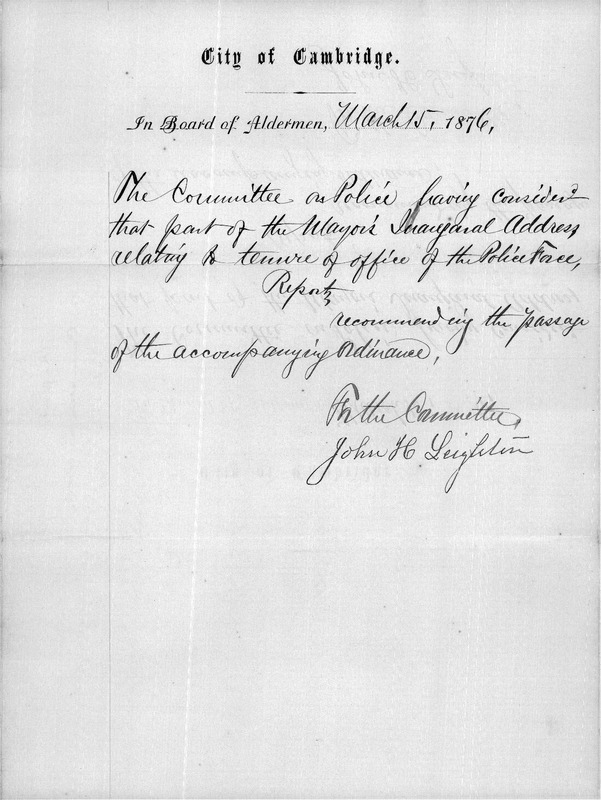 City of Cambridge.
In Board of Aldermen, March 15, 1876,
The Committee on Police having consider'd
that part of the Mayor's Inaugural Address
relating to tenure of office of the Police Force,
Report,
recommending the passage
of the accompanying Ordinance,
For the Committee,
John H Leighton